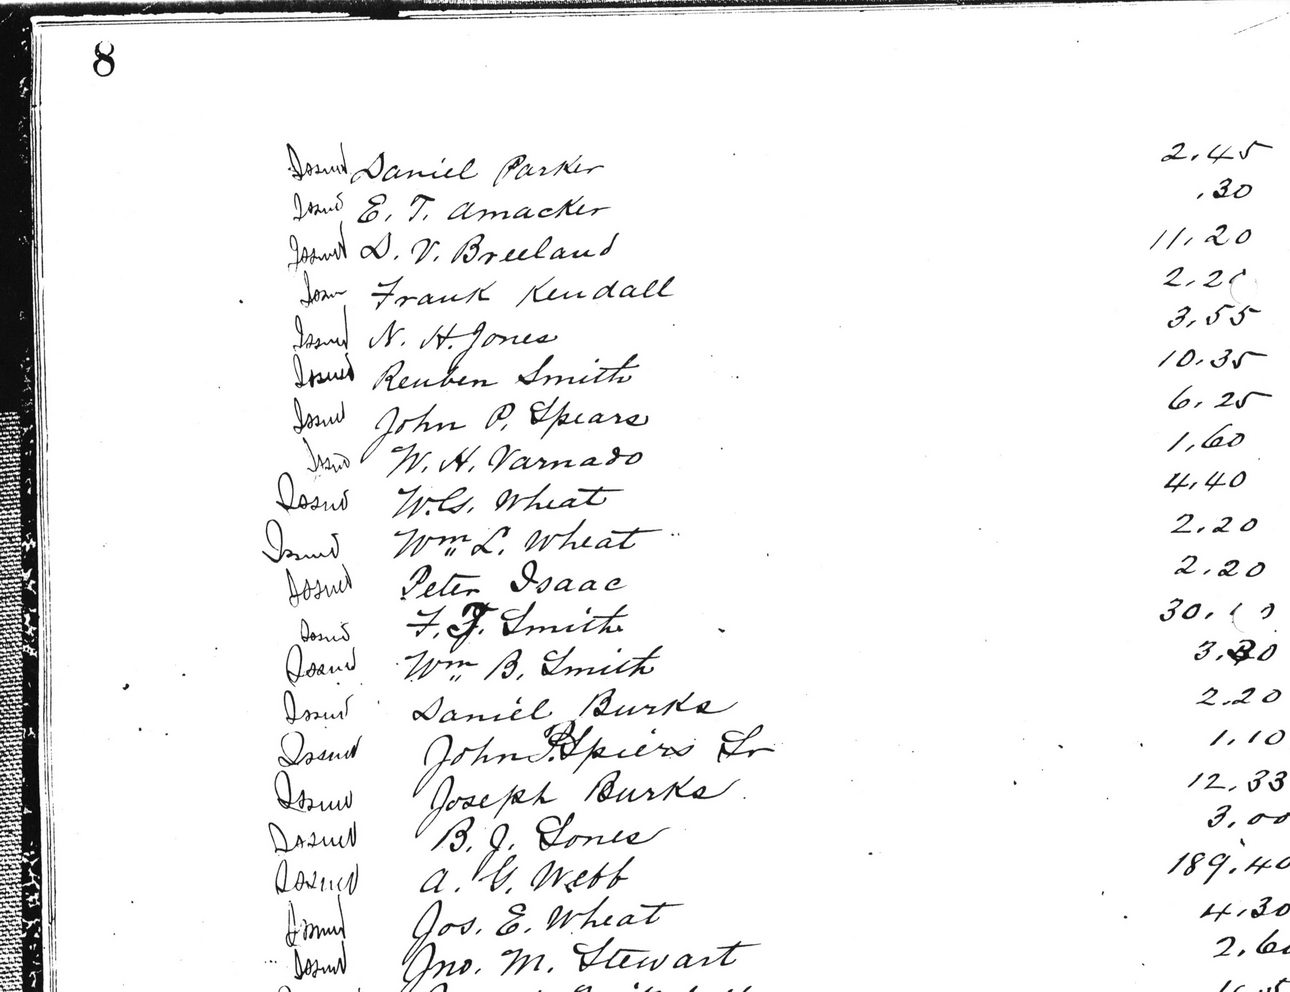 8
Issued Daniel Parker 2.45
Issued E. T. Amacker .30
Issued D. V. Breeland 11.20
Issued Frank Kendall
Issued N. H. Jones 3.55
Issued Reuben Smith 10.35
Issued John P. Spears 6.25
Issued W. H. Varnado 1.60
Issued W. G. Wheat 4.40
Issued Wm L. Wheat 2.20
Issued Peter Isaac 2.20
Issued F. F. Smith
Issued Wm B. Smith 3.30
Issued Daniel Burks 2.20
Issued John P. Spiers Sr 1.10
Issued Joseph Burks 12.33
Issued B. J. Jones 3.00
Issued A. G. Webb 189.40
Issued Jos. E. Wheat 4.30
Issued Jno. M. Stewart 2.60